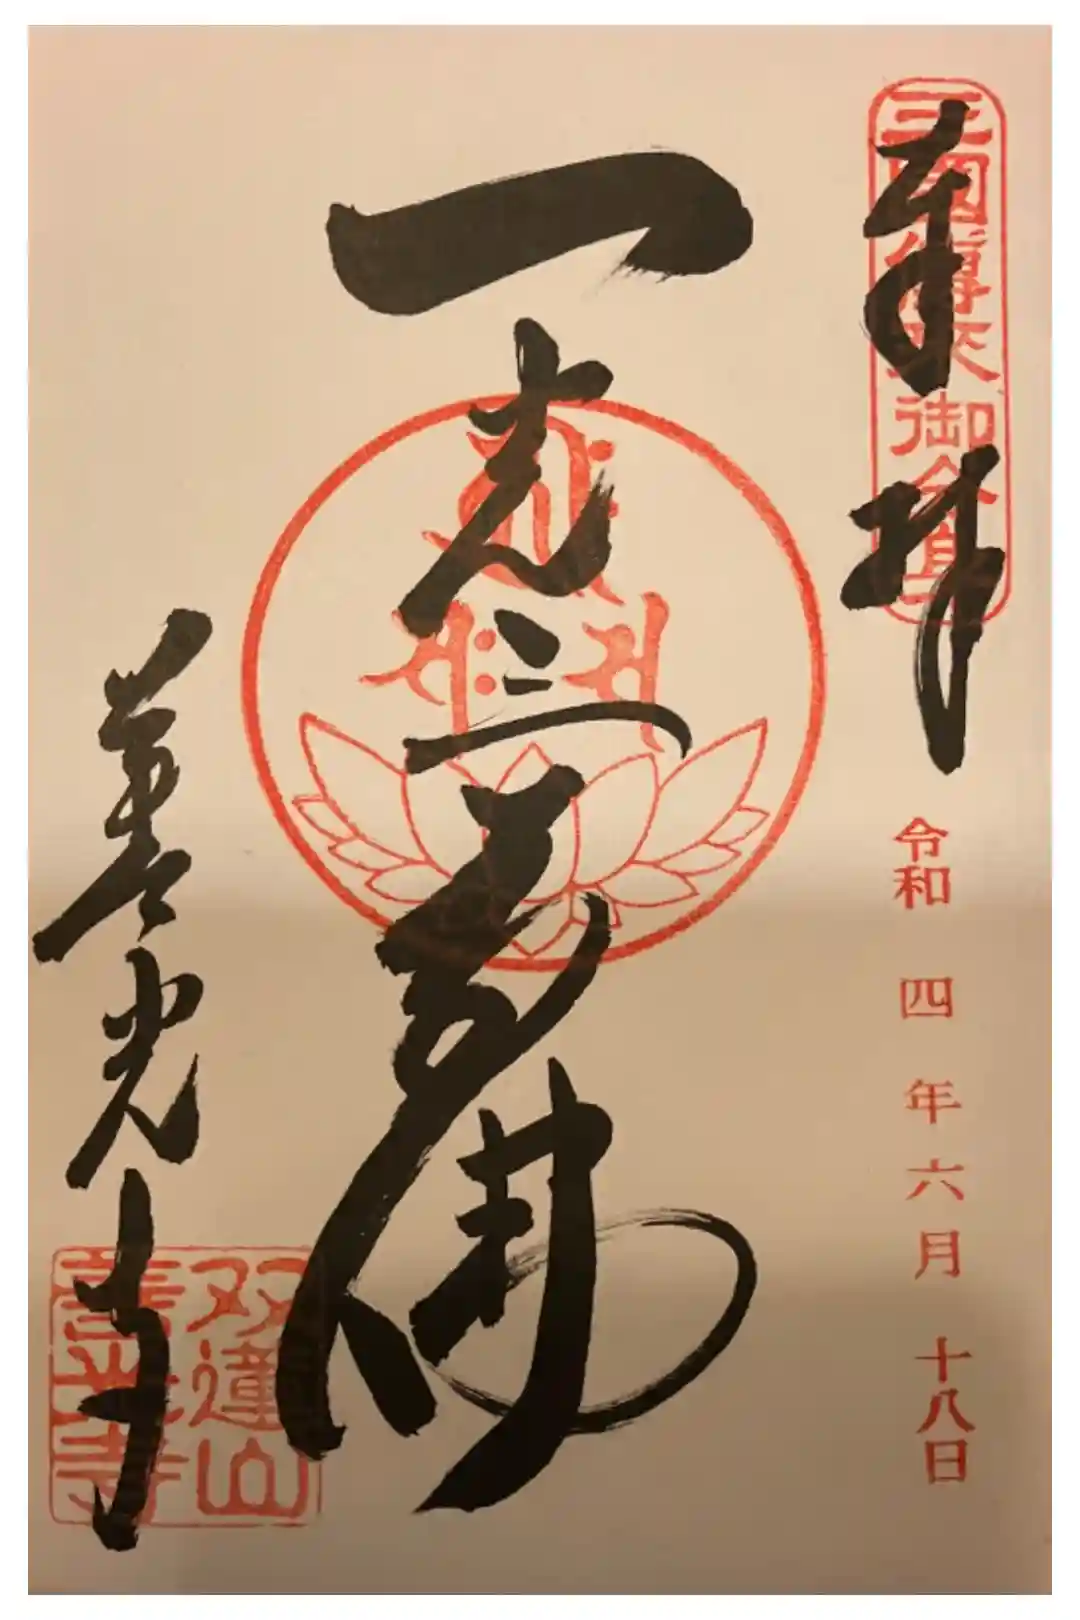 奉拝
三國傳来御分身
令和 四 年 六 月 十八日
一光三尊佛
善光寺
双蓮山
善光寺